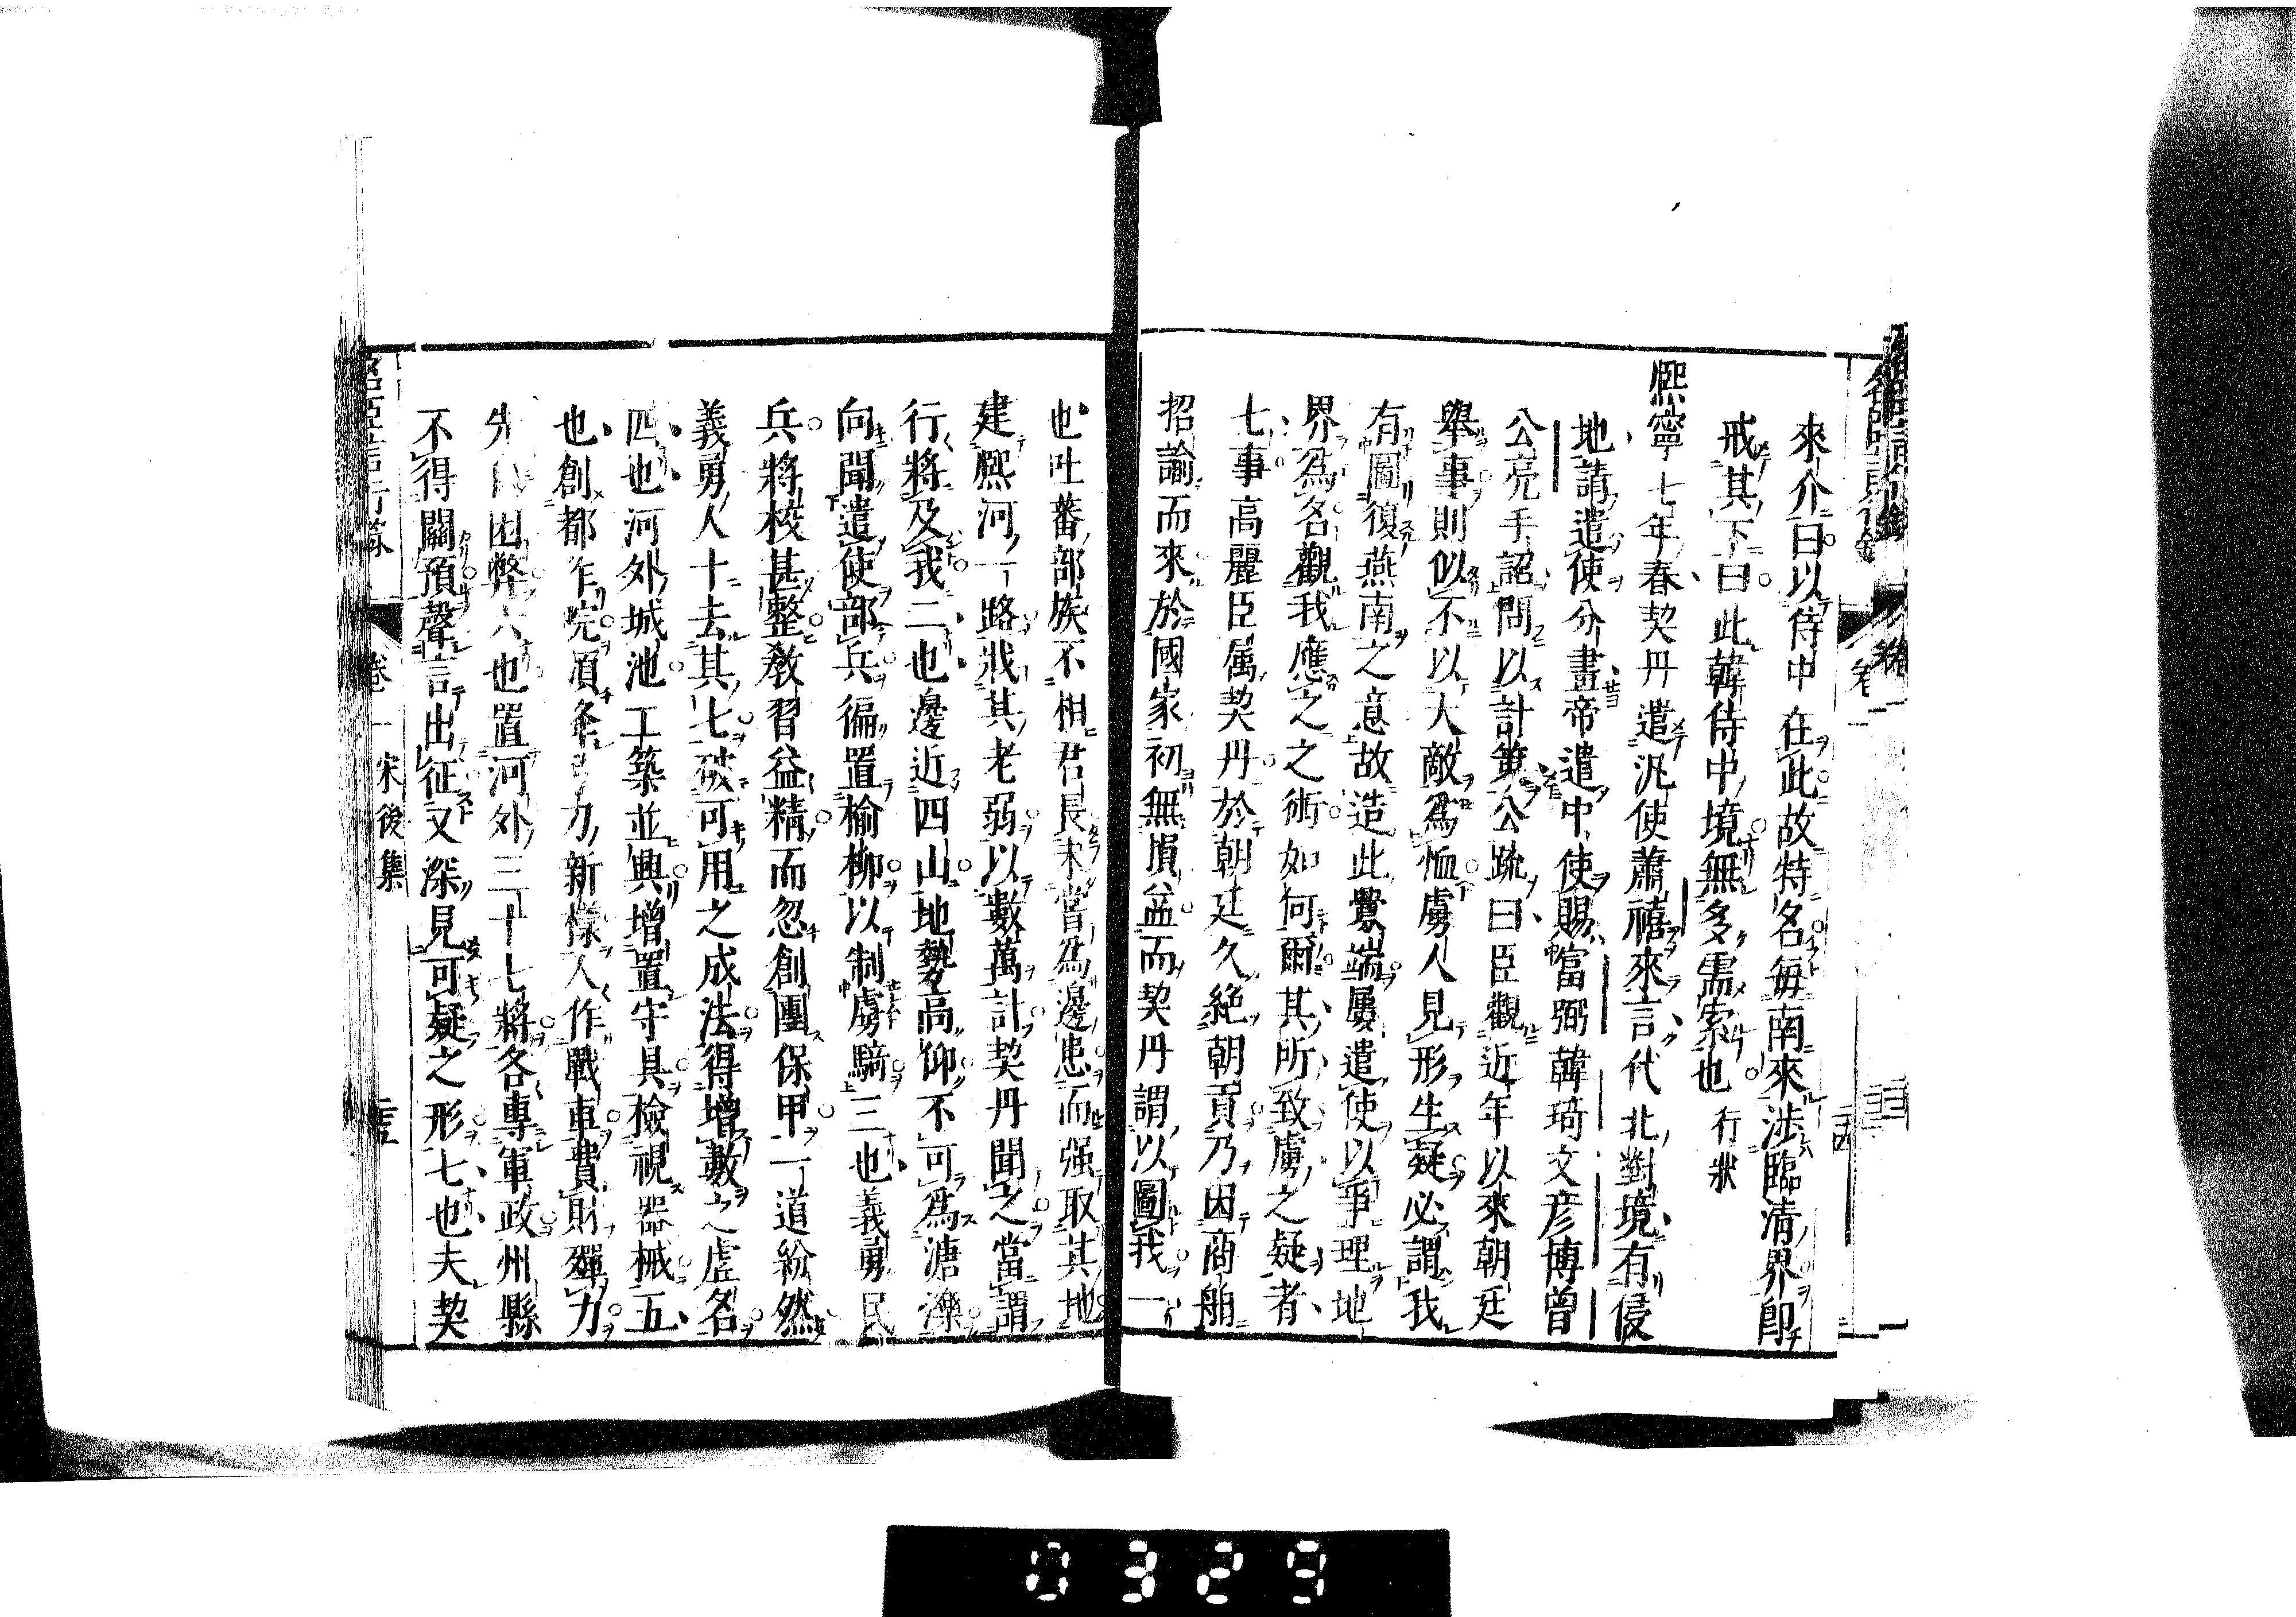 來介曰以侍中在此故特名每南來涉臨清界即
戒其下曰此韓侍中境無多需索也 行狀
熙寧七年春契丹遣汎使蕭禧來言代北對境有侵
地請遣使分畫帝遣中使賜富弼韓琦文彦博曾
公亮手詔問以計第公疏曰臣觀近年以來朝廷
舉事則似不以大敵爲恤虜人見形生疑必謂我
有圖復燕南之意故造此釁端屢遣使以爭理地
界爲名觀我應之之術如何爾其所致虜之疑者
七事高麗臣属契丹於朝廷久絶朝貢乃因商舶
招諭而來於國家初無損益而契丹謂以圖我一
也吐蕃部族不相君長未嘗爲邊患而强取其地
建熈河一路戕其老弱以數萬計契丹聞之當謂
行將及我二也邊近四山地勢高仰不可爲溏濼
向聞遣使部兵徧置榆柳以制虜騎三也義勇民
兵將校甚整敎習益精而忽創團保甲一道紛然
義勇人十去其七破可用之成法得增數之虛名
四也河外城池工築並興增置守具檢視器械五
也創都作院頒弓刀新樣大作戰車費財殫力
先自困弊六也置河外三十七將各專軍政州縣
不得關預聲言出征又深見可疑之形七也夫契
卷一 宋後集